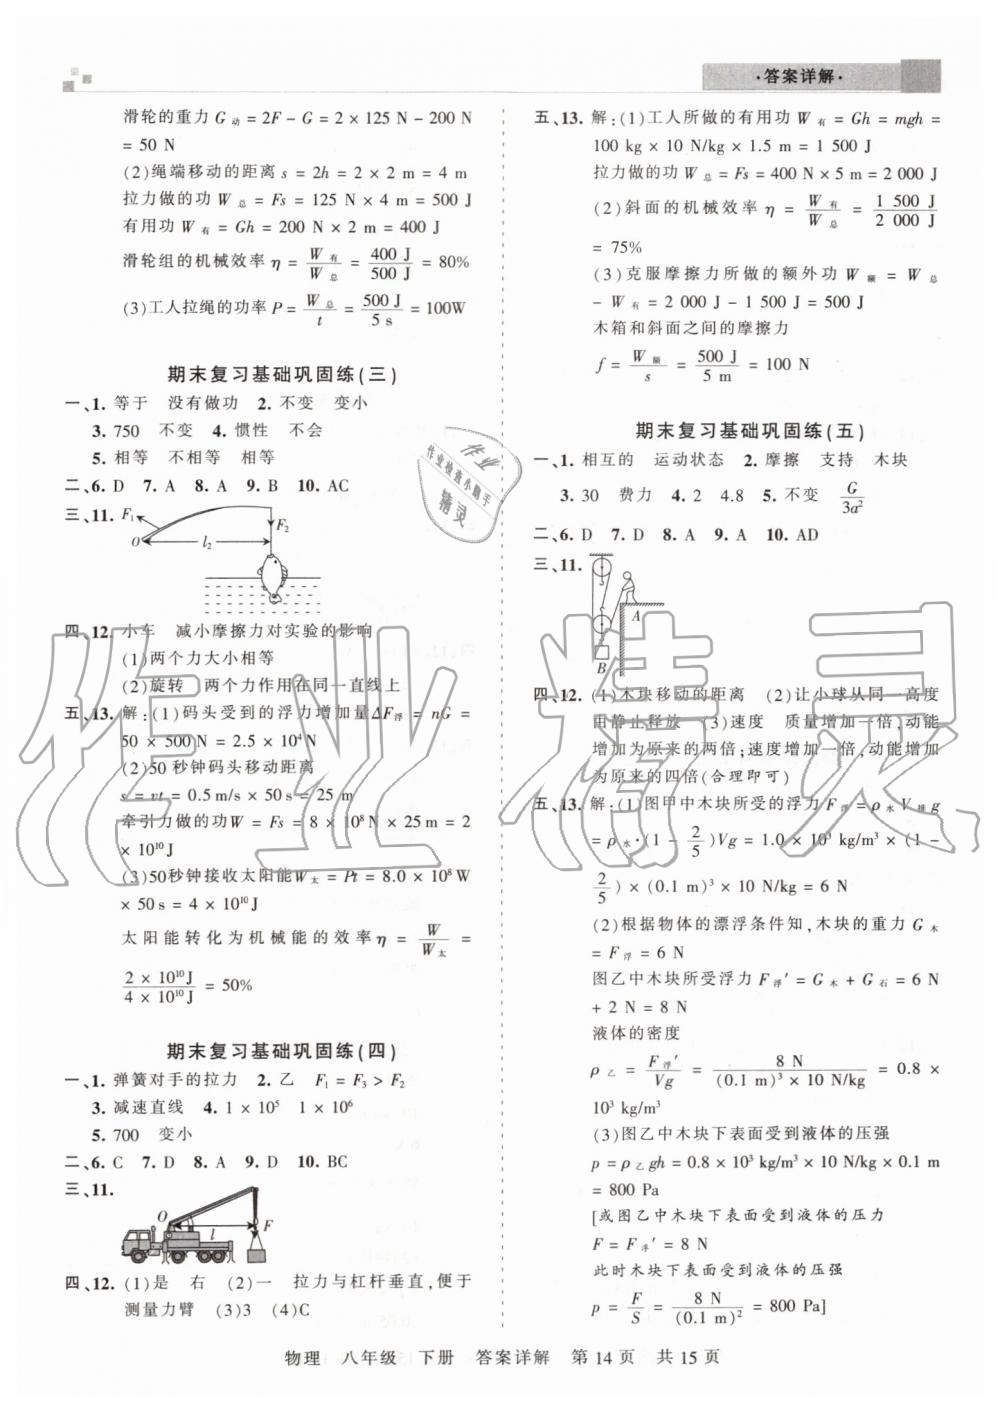 ·答案详解·
滑轮的重力 G动 = 2F - G = 2 × 125 N - 200 N
= 50 N
(2)绳端移动的距离 s = 2h = 2 × 2 m = 4 m
拉力做的功 W总 = Fs = 125 N × 4 m = 500 J
有用功 W有 = Gh = 200 N × 2 m = 400 J
滑轮组的机械效率 η = W有/W总 = 400 J/500 J = 80%
(3)工人拉绳的功率 P = W总/t = 500 J/5 s = 100W
期末复习基础巩固练(三)
一、1. 等于 没有做功 2. 不变 变小
3. 750 不变 4. 惯性 不会
5. 相等 不相等 相等
二、6. D 7. A 8. A 9. B 10. AC
三、11. F₁ O l₂ F₂
四、12. 小车 减小摩擦力对实验的影响
(1)两个力大小相等
(2)旋转 两个力作用在同一直线上
五、13. 解:(1)码头受到的浮力增加量ΔF浮 = nG =
50 × 500 N = 2.5 × 10⁴ N
(2)50 秒钟码头移动距离
s = vt = 0.5 m/s × 50 s = 25 m
牵引力做的功W = Fs = 8 × 10⁸ N × 25 m = 2
× 10¹⁰ J
(3)50秒钟接收太阳能W太 = Pt = 8.0 × 10⁸ W
× 50 s = 4 × 10¹⁰ J
太阳能转化为机械能的效率 η = W/W太 =
2 × 10¹⁰ J/4 × 10¹⁰ J = 50%
期末复习基础巩固练(四)
一、1. 弹簧对手的拉力 2. 乙 F₁ = F₃ > F₂
3. 减速直线 4. 1 × 10⁵ 1 × 10⁶
5. 700 变小
二、6. C 7. D 8. A 9. D 10. BC
三、11. O l F
四、12. (1)是 右 (2)一 拉力与杠杆垂直,便于
测量力臂 (3)3 (4)C
五、13. 解:(1)工人所做的有用功 W有 = Gh = mgh =
100 kg × 10 N/kg × 1.5 m = 1 500 J
拉力做的功 W总 = Fs = 400 N × 5 m = 2 000 J
(2)斜面的机械效率 η = W有/W总 = 1 500 J/2 000 J
= 75%
(3)克服摩擦力所做的额外功 W额 = W总
- W有 = 2 000 J - 1 500 J = 500 J
木箱和斜面之间的摩擦力
f = W额/s = 500 J/5 m = 100 N
期末复习基础巩固练(五)
一、1. 相互的 运动状态 2. 摩擦 支持 木块
3. 30 费力 4. 2 4.8 5. 不变 G/3a²
二、6. D 7. D 8. A 9. A 10. AD
三、11. A B
四、12. (1)木块移动的距离 (2)让小球从同一高度
由静止释放 (3)速度 质量增加一倍,动能
增加为原来的两倍;速度增加一倍,动能增加
为原来的四倍(合理即可)
五、13. 解:(1)图甲中木块所受的浮力 F浮 = ρ水V排g
= ρ水·(1 - 2/5)Vg = 1.0 × 10³ kg/m³ × (1 -
2/5) × (0.1 m)³ × 10 N/kg = 6 N
(2)根据物体的漂浮条件知,木块的重力 G木
= F浮 = 6 N
图乙中木块所受浮力 F浮′ = G木 + G石 = 6 N
+ 2 N = 8 N
液体的密度
ρ乙 = F浮′/Vg = 8 N/(0.1 m)³ × 10 N/kg = 0.8 ×
10³ kg/m³
(3)图乙中木块下表面受到液体的压强
p = ρ乙gh = 0.8 × 10³ kg/m³ × 10 N/kg × 0.1 m
= 800 Pa
[或图乙中木块下表面受到液体的压力
F = F浮′ = 8 N
此时木块下表面受到液体的压强
p = F/S = 8 N/(0.1 m)² = 800 Pa]
作业
作业检查小助手
精灵
作业精灵
物理 八年级 下册 答案详解 第14页 共15页